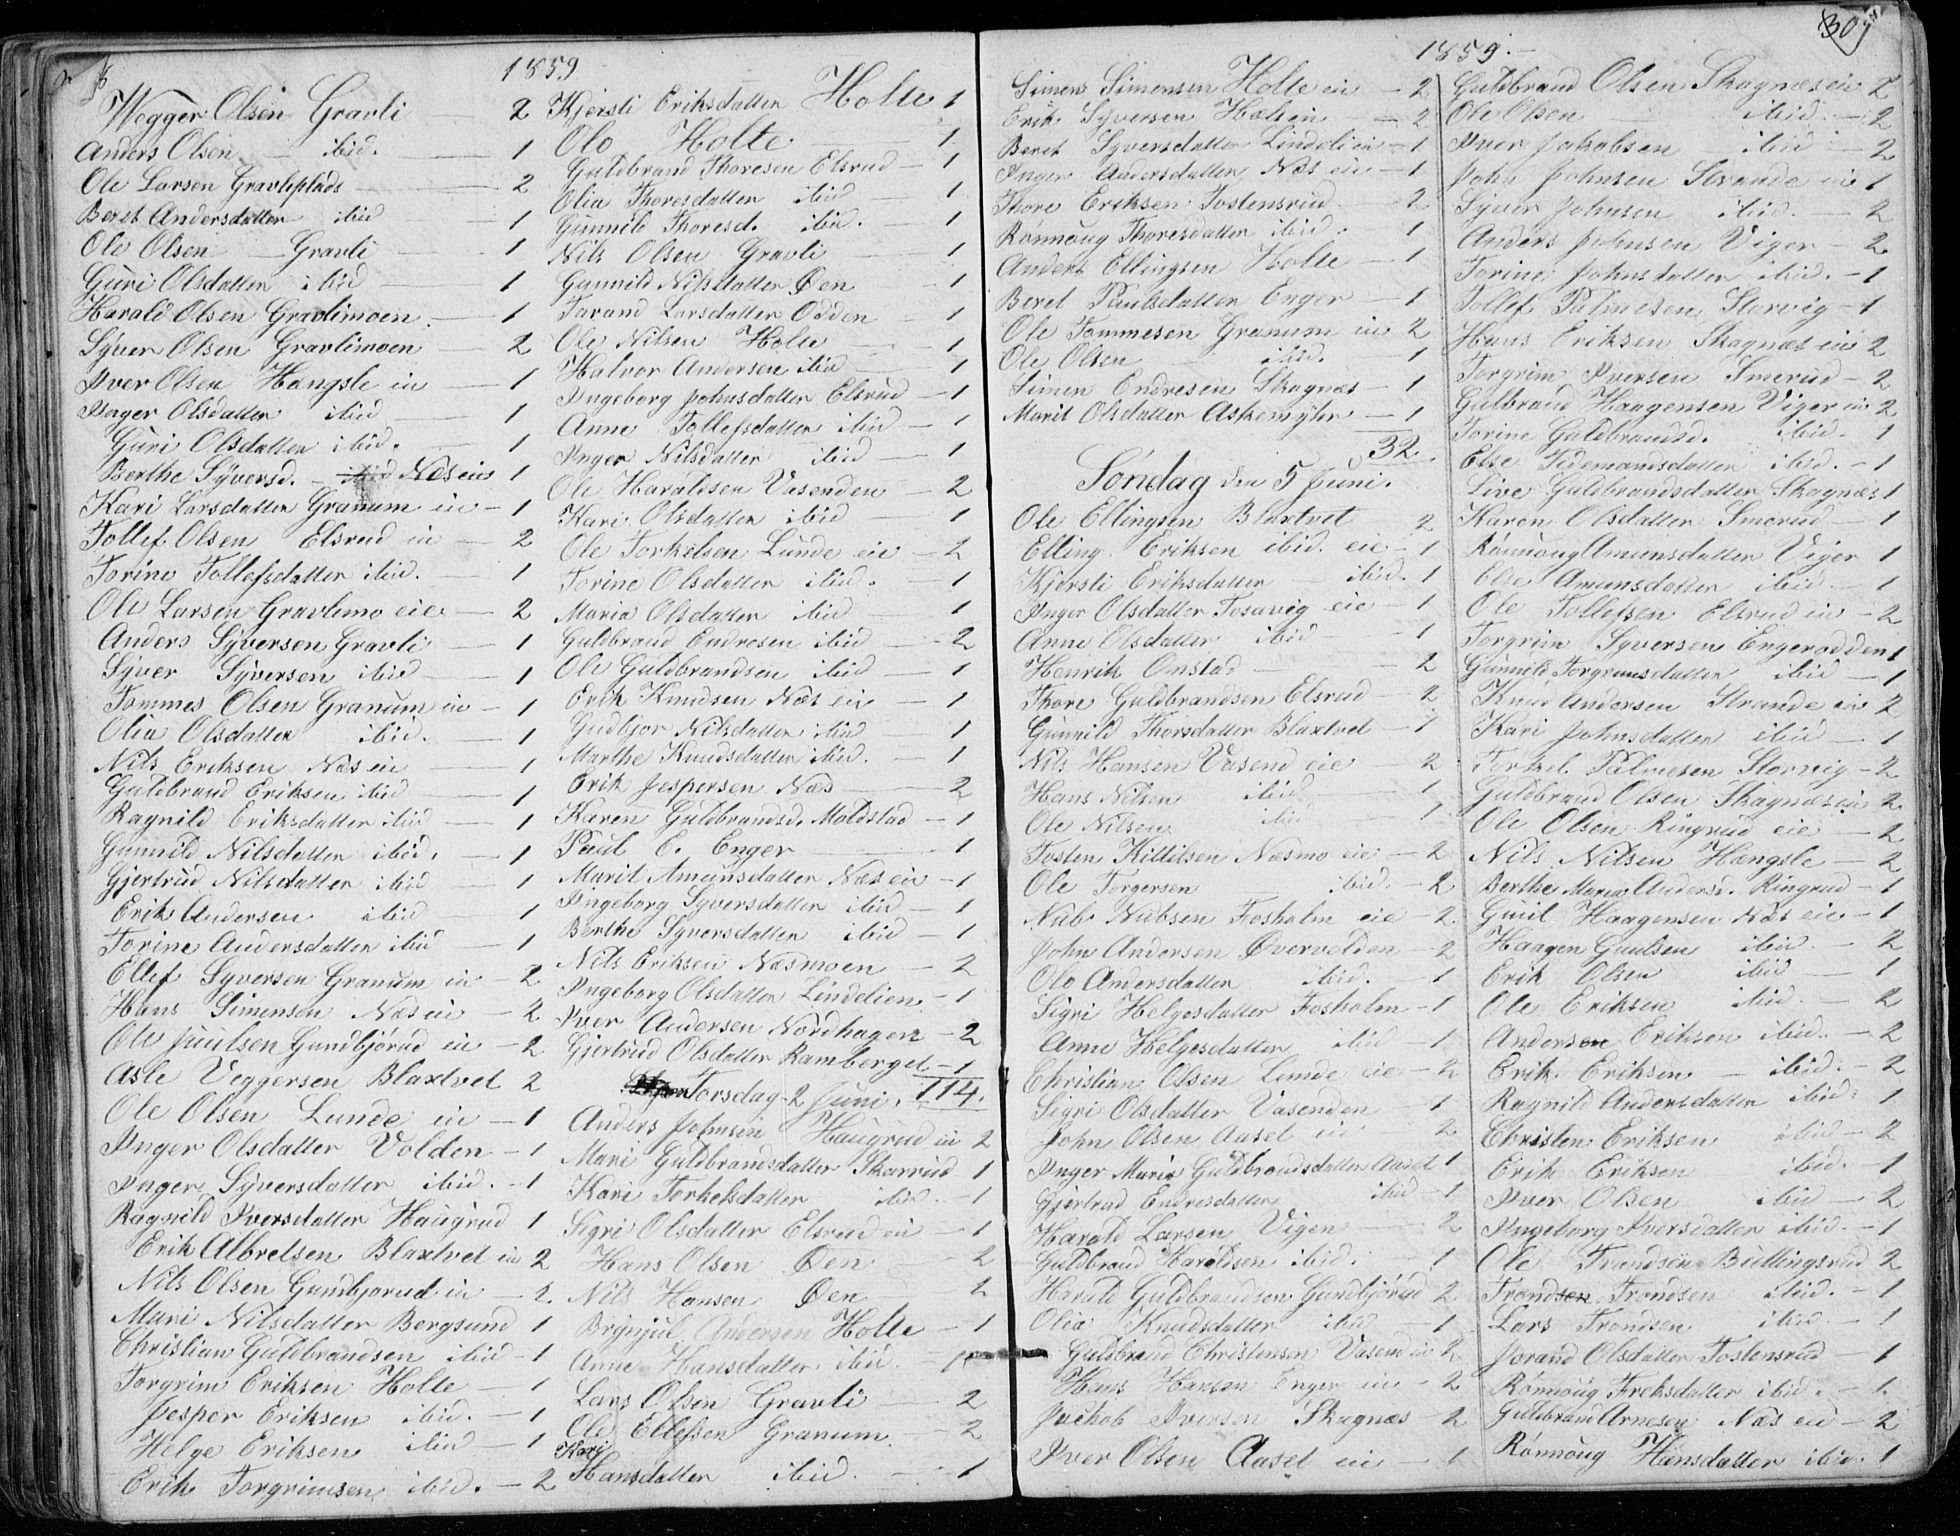 1859
Wegger Olsen Gravli — 2
Anders Olsen — ibid. — 1
Ole Larsen Gravliplads — 2
Beret Andersdatter ibid — 1
Ole Olsen — Gravli — 1
Guri Olsdatter ibid — 1
Harald Olsen Gravlimoen — 1
Syver Olsen Gravlimoen — 2
Iver Olsen Hængsle eie — 1
Inger Olsdatter ibid — 1
Guri Olsdatter ibid. — 1
Berthe Syversd. — ibid Næs eie 1
Kari Larsdatter Granum eie — 1
Tollef Olsen Elsrud eie — 2
Torine Tollefsdatter ibid. — 1
Ole Larsen Gravlimo eie — 2
Anders Syversen Gravli — 1
Syver Syversen ibid — 1
Tommes Olsen Granum eie — 1
Olia Olsdatter ibid. — 1
Nils Eriksen Næs eie — 1
Guldbrand Eriksen ibid — 1
Ragnild Eriksdatter ibid — 1
Gunnild Nilsdatter ibid. — 1
Gjertrud Nilsdatter ibid — 1
Erik Andersen ibid — 1
Torine Andersdatter ibid — 1
Ellef Syversen Granum eie — 2
Hans Simensen Næs eie — 2
Ole Juulsen Gundbjørud eie — 2
Asle Veggersen Blaxtvet 2
Ole Olsen Lunde eie — 1
Inger Olsdatter Volden — 1
Inger Syversdatter ibid. — 1
Ragnild Iversdatter Haugrud 1
Erik Albretsen Blaxtvet eie 2
Nils Olsen Gundbjørud eie — 2
Mari Nilsdatter Bergsund 1
Christian Guldbrandsen ibid — 1
Torgrim Eriksen Holte — 1
Jesper Eriksen ibid. — 1
Helge Eriksen ibid — 1
Erik Torgrimsen ibid. — 2
Kjersti Eriksdatter Holte 1
Olo Holte — 1
Guldbrand Thoresen Elsrud — 1
Olia Thoresdatter ibid — 1
Gunnild Thoresd. ibid. — 1
Nils Olsen Gravli — 1
Gunnild Nilsdatter Øen — 1
Tarand Larsdatter Odden 1
Ole Nilsen Holte — 1
Halvor Andersen ibid — 1
Ingeborg Johnsdatter Elsrud — 1
Anne Tollefsdatter ibid — 1
Inger Nilsdatter ibid — 1
Ole Haraldsen Vasenden — 2
Kari Olsdatter ibid — 1
Ole Torkelsen Lunde eie — 2
Torine Olsdatter ibid. — 1
Maria Olsdatter ibid — 1
Guldbrand Endresen ibid — 2
Ole Guldbrandsen ibid — 1
Erik Knudsen Næs eie — 1
Gudbjør Nilsdatter ibid 1
Marthe Knudsdatter ibid. — 1
Erik Jespersen Næs — 2
Karen Guldbrandsd. Moldstad — 1
Paul E. Enger — 1
Marit Amunsdatter Næs eie — 1
Ingeborg Syversdatter ibid — 1
Berthe Syversdatter ibid — 1
Nils Eriksen Næsmoen — 2
Ingeborg Olsdatter Lindelien — 1
Iver Andersen Nordhagen — 2
Gjertrud Olsdatter Ramberget — 1
Torsdag 2 Juni. 114.
Anders Johnsen Haugrud eie 2
Mari Guldbrandsdatter Skarrud 1
Kari Torkelsdatter ibid. — 1
Sigri Olsdatter Elsrud eie — 1
Hans Olsen Øen — 2
Nils Hansen Øen — 2
Brynjul Andersen Holte — 1
Anne Hansdatter ibid. — 1
Lars Olsen Gravli — 2
Ole Ellefsen Granum — 2
Kari
Hansdatter ibid. — 1
1859.
Simen Simensen Holte eie — 2
Erik Syversen Holteeie — 2
Beret Syversdatter Lindeli eie — 1
Inger Andersdatter Næs eie — 1
Thore Eriksen Tostensrud — 2
Rønnoug Thoresdatter ibid. 1
Anders Ellingsen Holte — 1
Beret Paulsdatter Enger — 1
Ole Tommesen Granum eie 2
Ole Olsen — ibid. 1
Simen Endresen Skagnæs — 1
Marit Olsdatter Askemyhr — 1
32.
Søndag den 5 Juni.
Ole Ellingsen Blaxtvet 2
Elling Eriksen ibid. eie — 1
Kjersti Eriksdatter — ibid. 1
Inger Olsdatter Tosavig eie — 1
Anne Olsdatter ibid — 1
Henrik Onstad — 2
Thore Guldbrandsen Elsrud — 2
Gunnild Thorsdatter Blaxtvet — 1
Nils Hansen Vasend eie — 2
Hans Nilsen ibid — 1
Ole Nilsen ibid — 1
Tosten Kittilsen Næsmo eie — 2
Ole Torgersen ibid. — 2
Nub Nubsen Fosholm eie — 2
John Andersen Øvervolden — 2
Olo Andersdatter ibid. — 1
Sigri Helgesdatter Fosholm — 1
Anne Helgesdatter ibid — 1
Christian Olsen Lunde eie — 2
Sigri Olsdatter Vasenden 1
John Olsen Aasel eie 2
Inger Maria Guldbrandsdatter Aasel 1
Gjertrud Endresdatter ibid — 1
Harald Larsen Vigen — 2
Guldbrand Haraldsen ibid. — 1
Harald Guldbrandsen Gundbjørud 2
Olia Knudsdatter ibid — 1
Guldbrand Christensen Vasend eie 2
Hans Hansen Enger eie — 2
Jackob Iversen Skagnæs — 2
Iver Olsen Aasel eie — 1
Guldbrand Olsen Skagnæs eie 2
Ole Olsen ibid. — 2
Iver Jakobsen — ibid — 2
John Johnsen Strande eie 1
Syver Johnsen ibid. — 2
Anders Johnsen Viger — 2
Torine Johnsdatter ibid. — 1
Tollef Palmesen Storvig — 1
Hans Eriksen Skagnæs eie 2
Torgrim Iversen Smerud — 2
Gulbrand Haagensen Viger eie 2
Torine Guldbrandsd. ibid. 1
Else Tidemandsdatter ibid. — 1
Live Guldbrandsdatter Skagnæs 1
Karen Olsdatter Smerud — 1
Rønnoug Amunsdatter Viger 1
Else Amunsdatter ibid. — 1
Ole Tollefsen Elsrud eie — 2
Torgrim Syversen Engerodden 1
Gunnild Torgrimsdatter ibid — 1
Knud Andersen Strande eie 2
Kari Johnsdatter ibid — 1
Torkel Palmesen Storvig — 2
Guldbrand Olsen Skagnæs eie 2
Ole Olsen Ringrud eie — 2
Nils Nilsen Hængsle — 2
Berthe Maria Andersd. Ringrud — 1
Guul Haagensen Næs eie — 1
Haagen Guulsen ibid. — 2
Erik Olsen ibid — 1
Ole Eriksen ibid. — 2
Andersen Eriksen ibid. — 2
Erik Eriksen — ibid. — 2
Ragnild Andersdatter ibid: 1
Christen Eriksen ibid — 2
Erik Eriksen ibid. — 1
Iver Olsen ibid — 2
Ingeborg Iversdatter ibid. — 1
Ole Trondsen Bullingsrud 2
Trondsen Trondsen ibid. — 1
Lars Trondsen ibid. — 1
Jorand Olsdatter Tostensrud — 1
Rønnoug Freksdatter ibid. — 1
Guldbrand Arnesen Næs eie — 2
Rønnoug Hansdatter ibid. 1